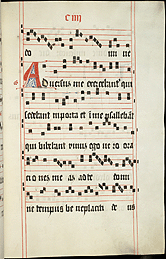 do mi ne
Aduersus me exercebant' qui
sedebant in porta et i me psallebāt
qui bibebant vinum ego ve ro ora
cio nem me am ad te domi
ne tempus be neplaciti de us